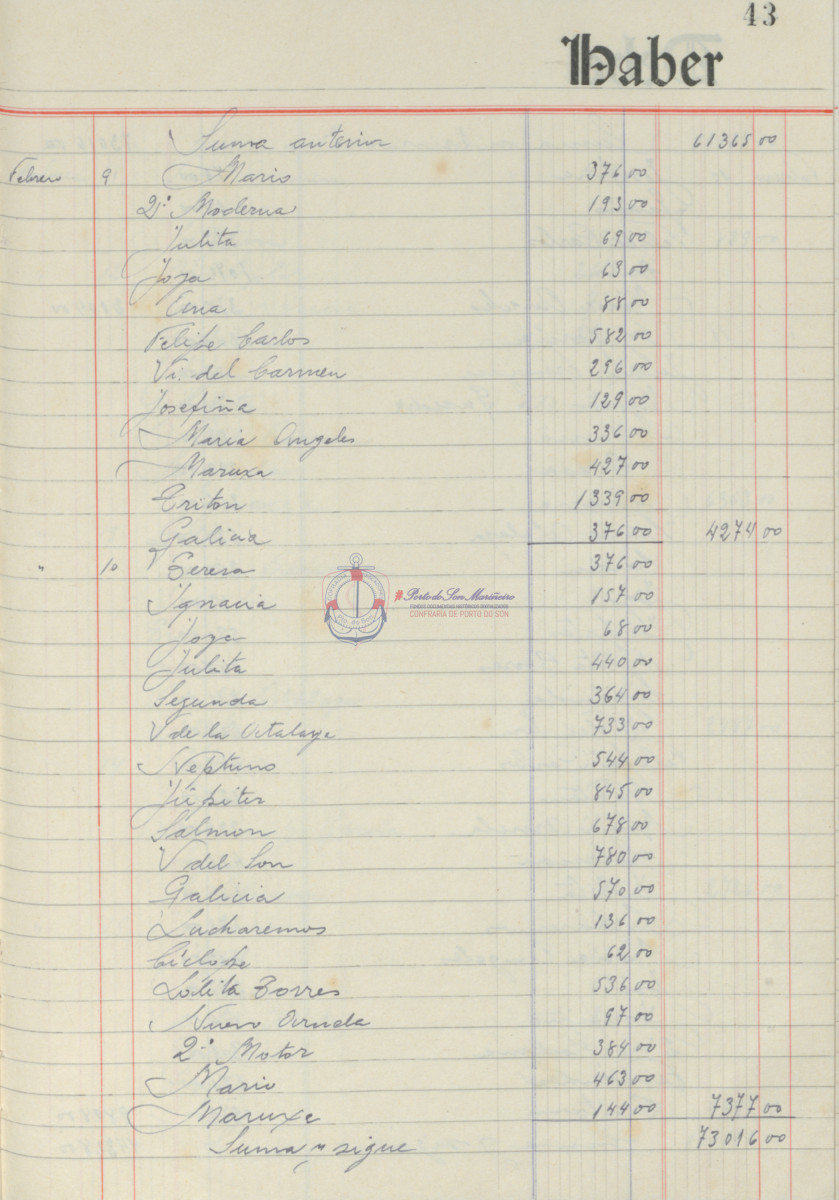 43
Haber
Suma anterior 61365 00
Febrero 9 Mario 376 00
2ª Moderna 193 00
Julita 69 00
Joya 63 00
Ema 88 00
Felipe Carlos 582 00
Vi. del Carmen 296 00
Josefiña 129 00
Maria Angeles 336 00
Maruxa 427 00
Triton 1339 00
Galicia 376 00 4274 00
" 10 Teresa 376 00
Ignacia 157 00
Joya 68 00
Julita 440 00
Segunda 364 00
V de la Atalaya 733 00
Neptuno 544 00
Júpiter 845 00
Salmon 678 00
V del Son 780 00
Galicia 570 00
Lucharemos 136 00
Cíclope 62 00
Lolita Torres 536 00
Nuevo 97 00
2º Motor 384 00
Mario 463 00
Maruxa 144 00 7377 00
Suma y sigue 73016 00
COFRADÍA PESCADORES
Pto. do Son
#PortodoSon Mariñeiro
FONDOS DOCUMENTAIS HISTÓRICOS DIXITALIZADOS
CONFRARÍA DE PORTO DO SON